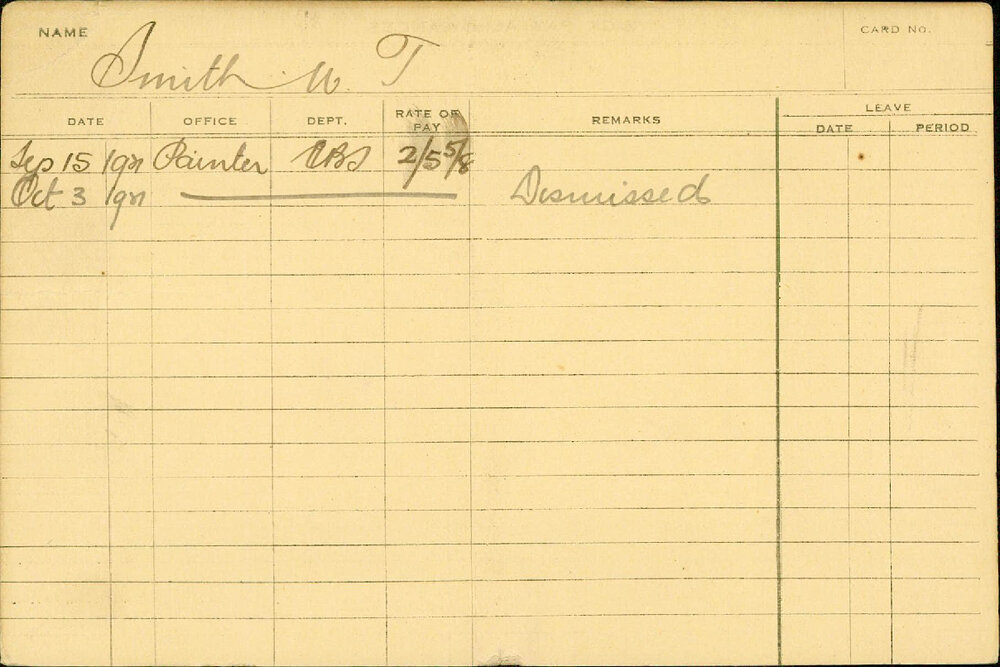 NAME
CARD NO.
Smith W. T
DATE OFFICE DEPT. RATE OF PAY REMARKS LEAVE
DATE PERIOD
Sep 15 Painter 2/5 5/8
Oct 3 Dismissed